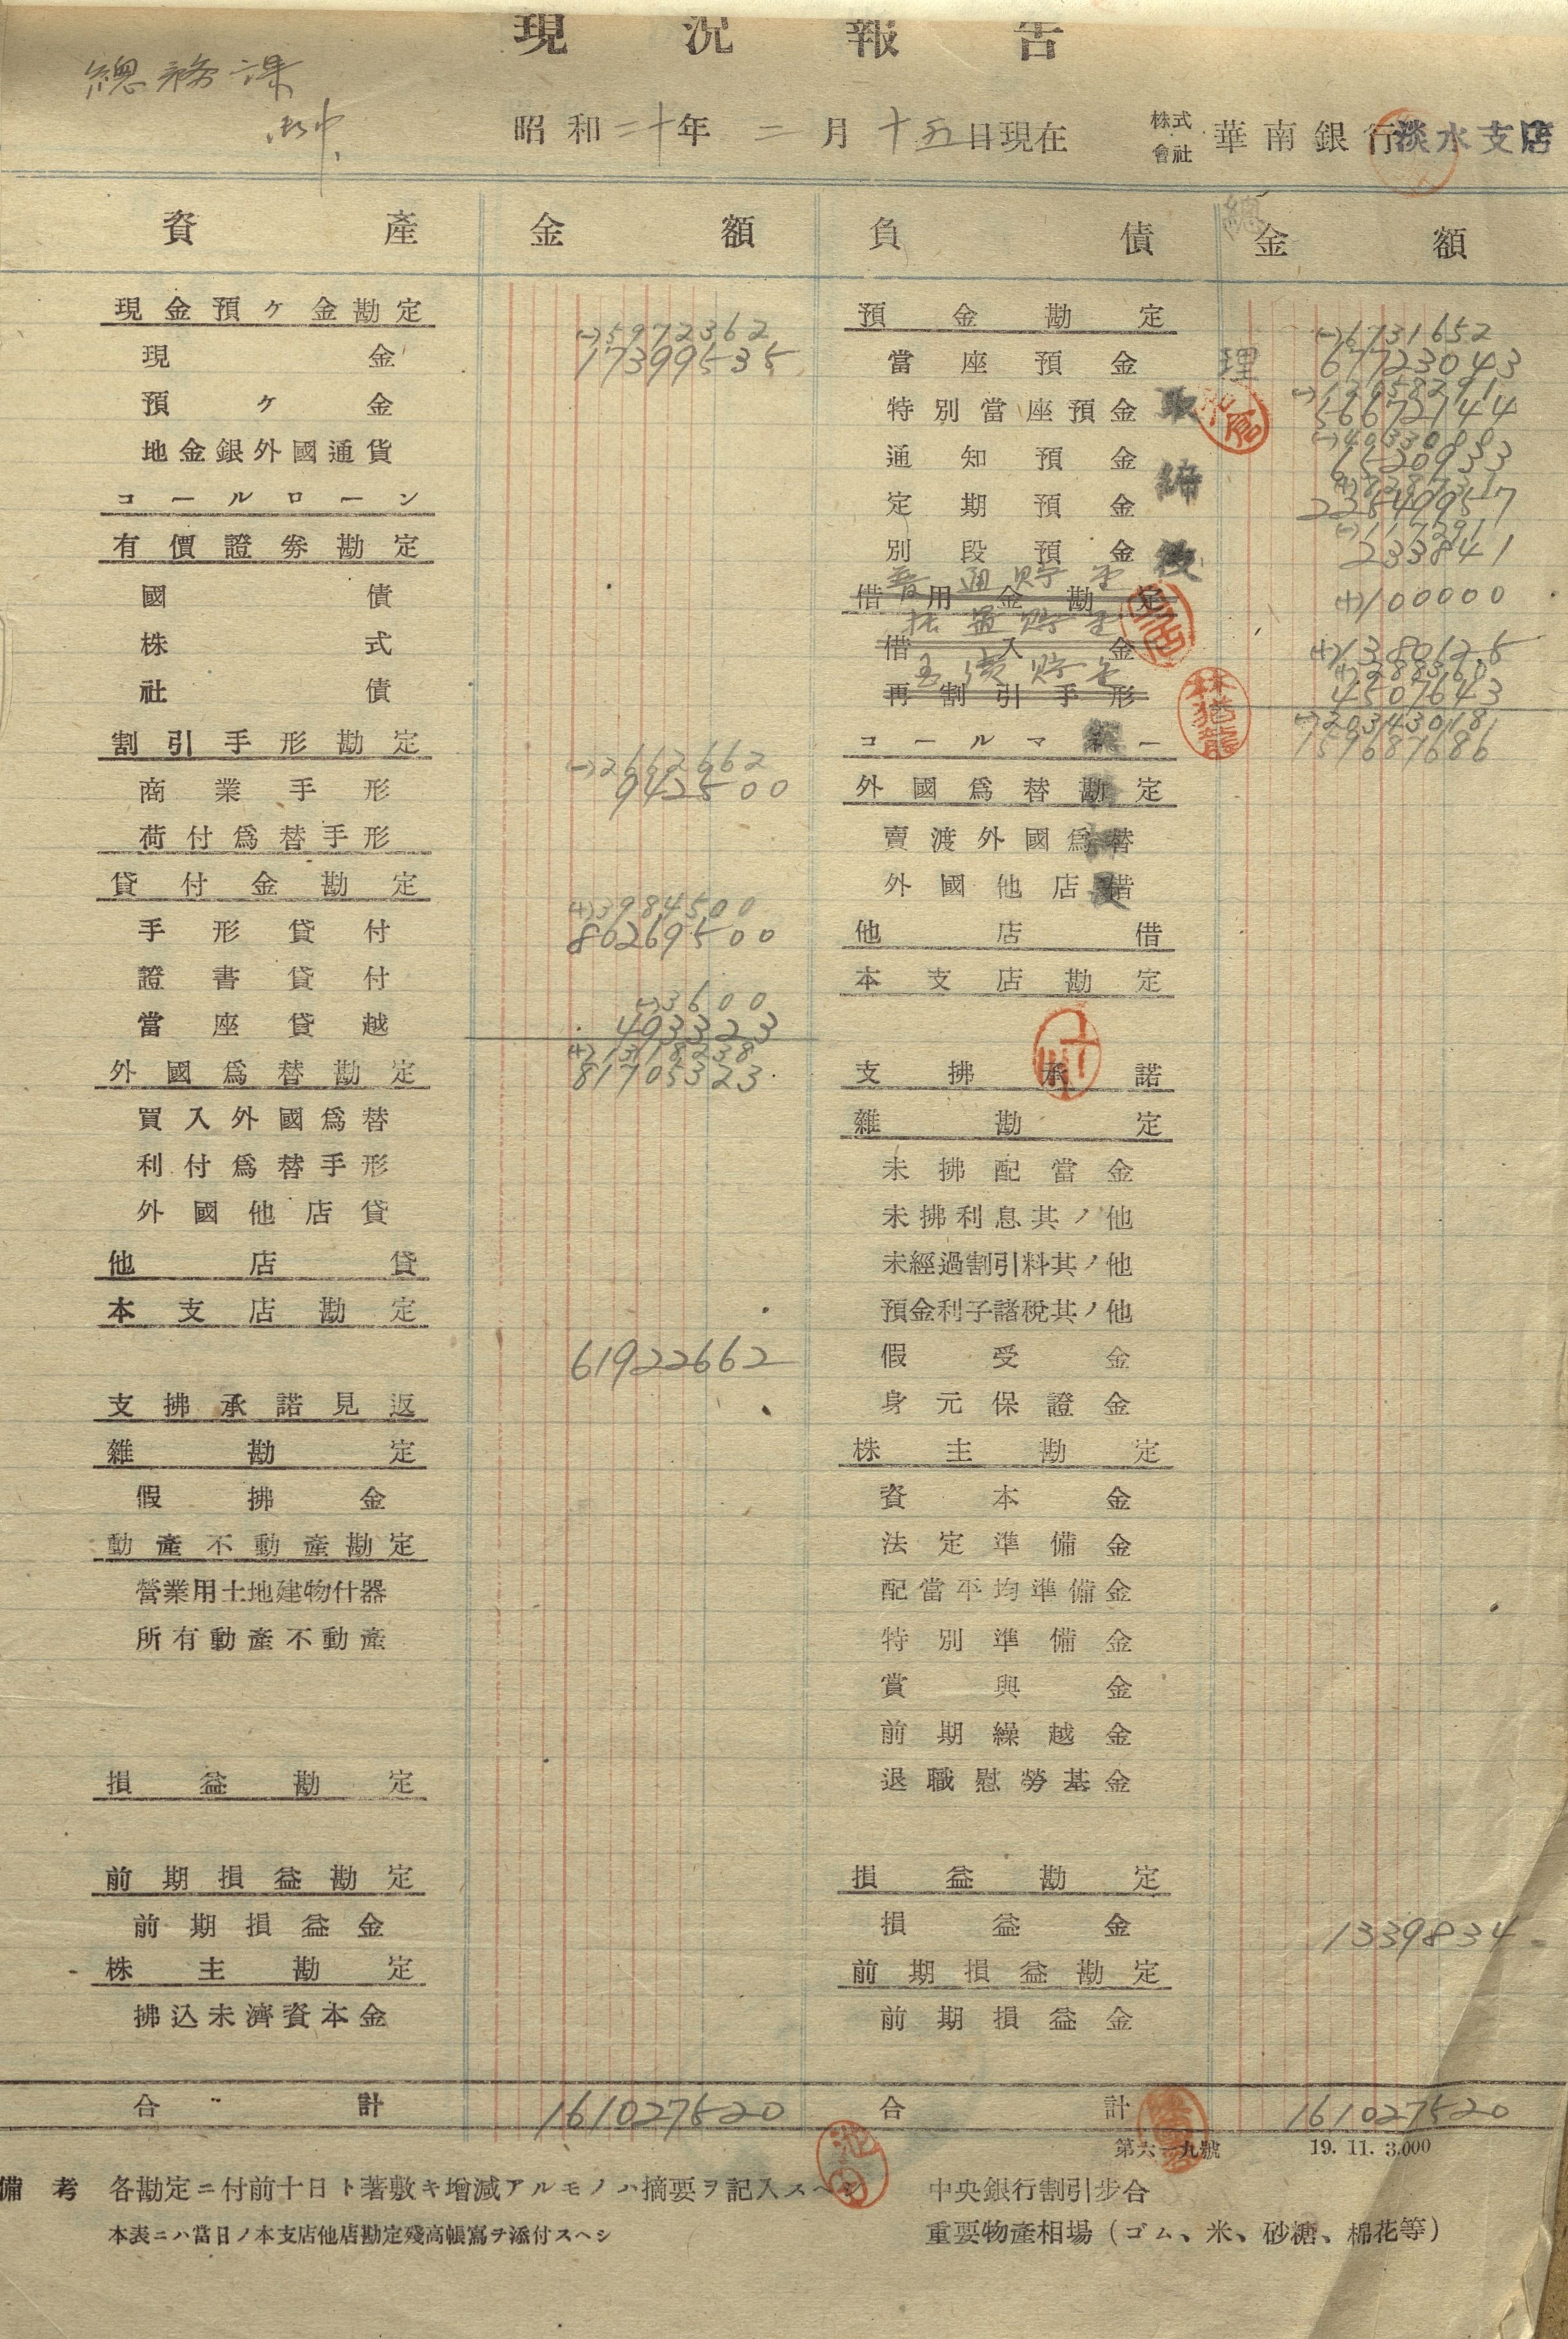 現況報告
總務課
御中
昭和二十年二月十五日現在 株式會社 華南銀行淡水支店
資產 金額 負債 金額
現金預ケ金勘定 預金勘定
(-)5972362 (-)6731652
現金 17399535 當座預金 67723043
預ケ金 特別當座預金 56672144
(-)4033088
地金銀外國通貨 通知預金 6520933
コールローン 定期預金 22549957
(-)117291
有價證劵勘定 別段預金 233841
普通貯金
國債 借用金勘定 (+)100000
据置貯金
株式 借入金 (+)1380125
(+)288360
社債 再割引手形 4507643
(-)20343018
割引手形勘定 コールマネー 159687686
(-)2662662
商業手形 942500 外國爲替勘定
荷付爲替手形 賣渡外國爲替
貸付金勘定 外國他店借
(+)3984500
手形貸付 80269500 他店借
證書貸付 本支店勘定
(-)3600
當座貸越 493323
(+)1318238
外國爲替勘定 81705323 支拂承諾
買入外國爲替 雜勘定
利付爲替手形 未拂配當金
外國他店貸 未拂利息其ノ他
他店貸 未經過割引料其ノ他
本支店勘定 預金利子諸稅其ノ他
61922662 假受金
支拂承諾見返 身元保證金
雜勘定 株主勘定
假拂金 資本金
動產不動產勘定 法定準備金
營業用土地建物什器 配當平均準備金
所有動產不動產 特別準備金
賞與金
前期繰越金
損益勘定 退職慰勞基金
前期損益勘定 損益勘定
前期損益金 損益金 1339834
株主勘定 前期損益勘定
拂込未濟資本金 前期損益金
合計 161027520 合計 161027520
第六一九號 19.11.3.000
備考 各勘定ニ付前十日ト著敷キ增減アルモノハ摘要ヲ記入スヘシ 中央銀行割引步合
本表ニハ當日ノ本支店他店勘定殘高帳寫ヲ添付スヘシ 重要物產相場(ゴム、米、砂糖、棉花等)
總理
取締役
林猶龍